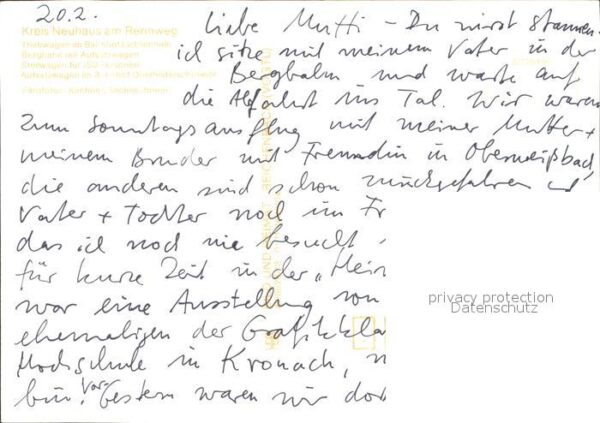 20.2.
Liebe Mutti - Du wirst staunen
Kreis Neuhaus am Rennweg
ich sitze mit meinem Vater in der
Bergbahn und warte auf
die Abfahrt ins Tal. Wir waren
zum Sonntagsausflug mit meiner Mutter +
meinem Bruder mit Freundin in Oberweißbach,
die anderen sind schon zurückgefahren
Vater + Tochter noch im Fr
das ich noch nie besucht
für kurze Zeit in der „Hein
war eine Ausstellung von
ehemaligen der Grafikkla
Hochschule in Kronach,
bin. Vorgestern waren wir dor
privacy protection
Datenschutz